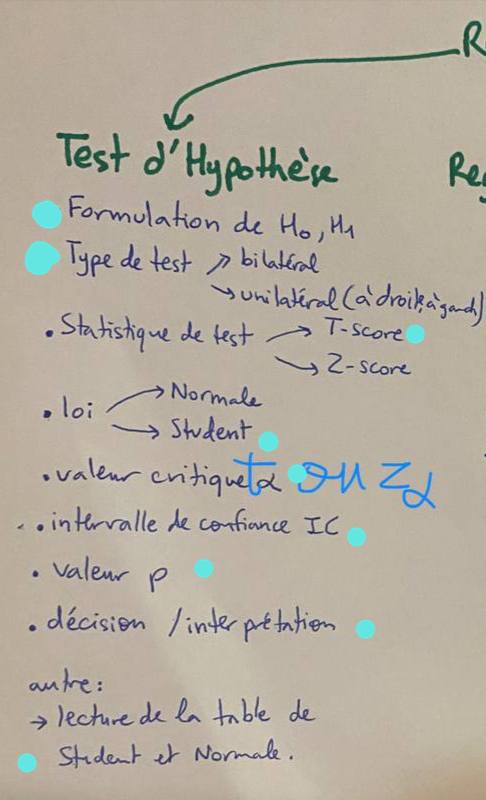 R
Test d'Hypothèse
Reg
Formulation de H0, H1
Type de test ↗ bilatéral
↘ unilatéral (à droite, à gauch)
. Statistique de test → T-score
→ Z-score
. loi → Normale
→ Student
. valeur critique tα ou Zα
. intervalle de confiance IC
. valeur p
. décision / interprétation
autre:
→ lecture de la table de
Student et Normale.